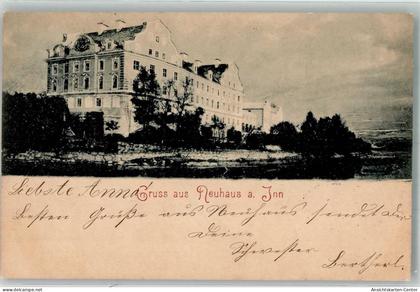 Liebste Anna
Gruss aus Neuhaus a. Inn
Besten Grüße aus Neuhaus sendet Dir
Deine
Schwester
Bertherl.
www.ansichtskarten-center.de
Ansichtskarten-Center